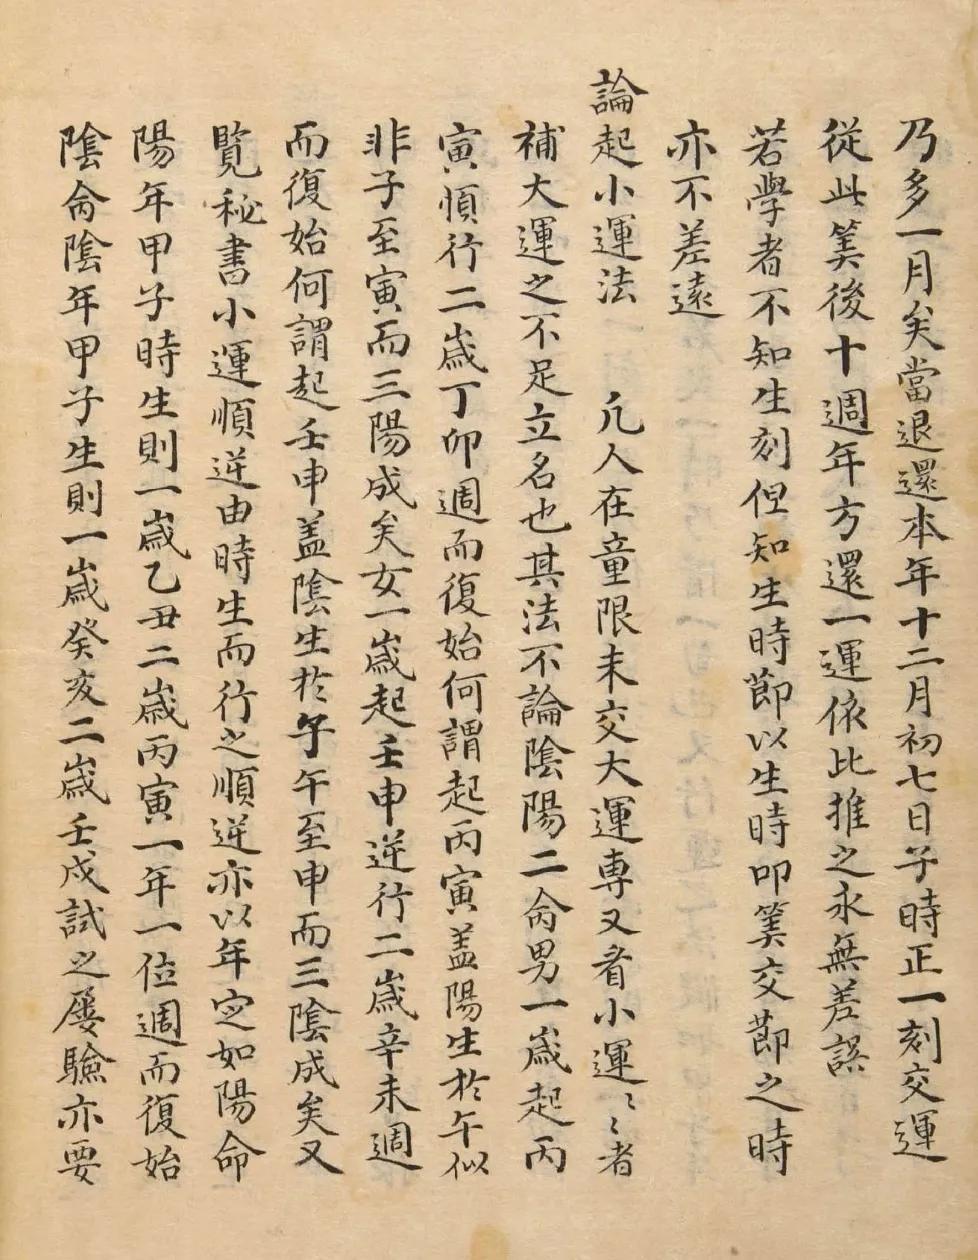 乃多一月矣當退還本年十二月初七日子時正一刻交運
從此筭後十週年方還一運依比推之永無差誤
若學者不知生刻但知生時節以生時叩筭交節之時
亦不差遠
論起小運法　凢人在童限未交大運専又看小運〻〻者
補大運之不足立名也其法不論陰陽二命男一歲起丙
寅順行二歲丁卯週而復始何謂起丙寅盖陽生於午似
非子至寅而三陽成矣女一歲起壬申逆行二歲辛未週
而復始何謂起壬申盖陰生於午午至申而三陰成矣又
覧秘書小運順逆由時生而行之順逆亦以年定如陽命
陽年甲子時生則一歲乙丑二歲丙寅一年一位週而復始
陰命陰年甲子生則一歲癸亥二歲壬戌試之屡驗亦要